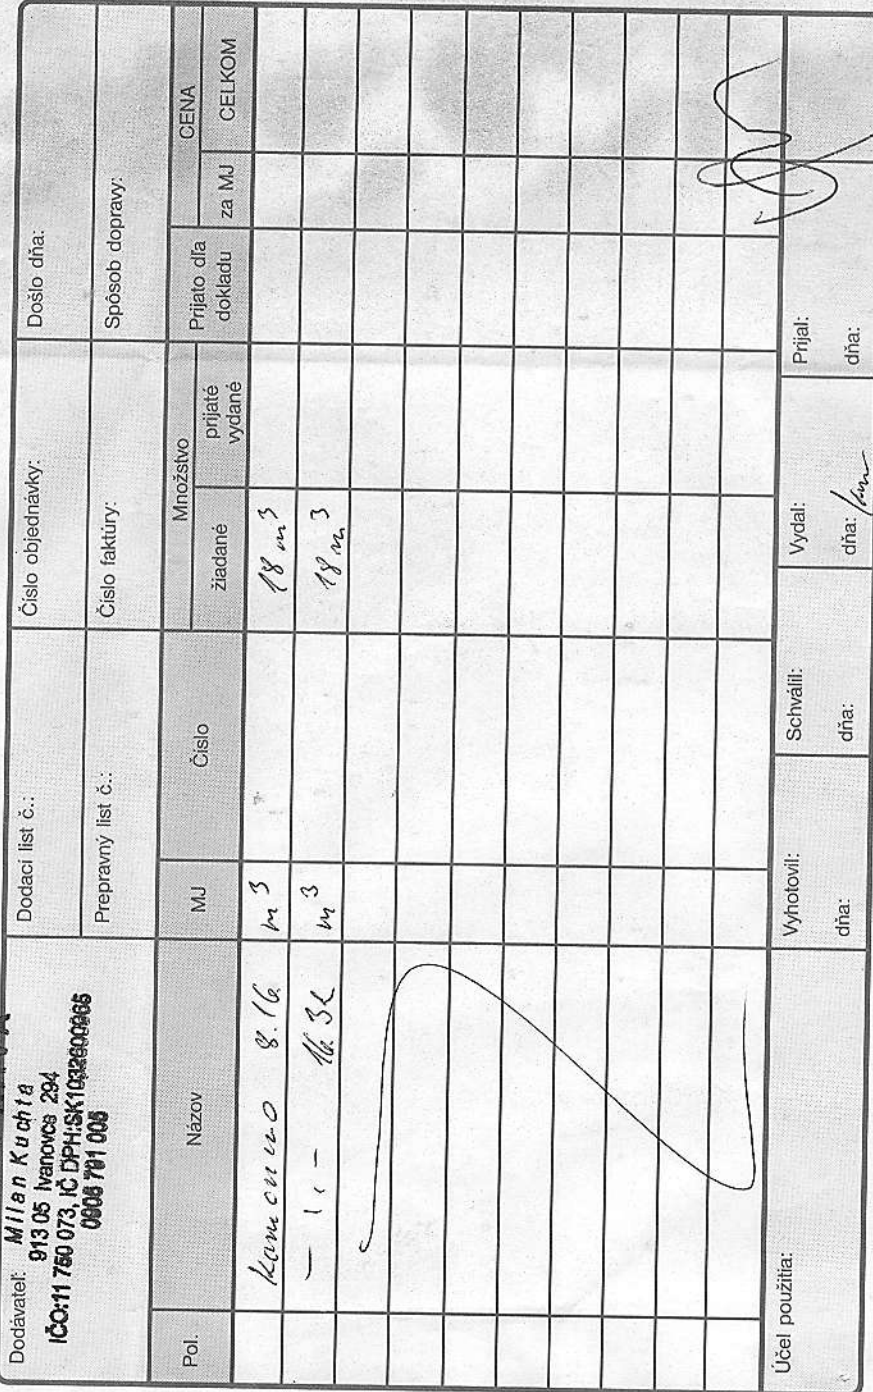 Dodávateľ: Milan Kuchta
913 05 Ivanovce 294
IČO:11 760 073, IČ DPH:SK1032600965
0908 791 005
Dodací list č.:
Číslo objednávky:
Došlo dňa:
Prepravný list č.:
Číslo faktúry:
Spôsob dopravy:
Pol.
Názov
MJ
Číslo
Množstvo
žiadané
prijaté
vydané
Prijato dľa
dokladu
CENA
za MJ
CELKOM
kamenivo 8.16 m3 18 m3
— 1, — 16.32 m3 18 m3
Účel použitia:
Vyhotovil:
dňa:
Schválil:
dňa:
Vydal:
dňa:
Prijal:
dňa: